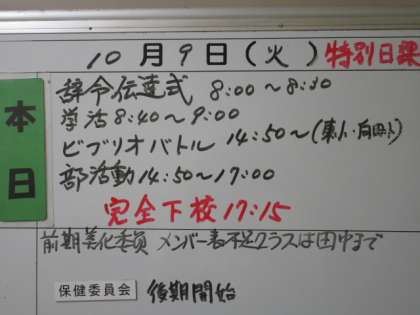 10月9日(火) 特別日課
本日
辞令伝達式 8:00〜8:30
学活 8:40〜9:00
ビブリオバトル 14:50〜(東小・向田小)
部活動 14:50〜17:00
完全下校17:15
前期美化委員 メンバー表不足クラスは田中まで
保健委員会 後期開始